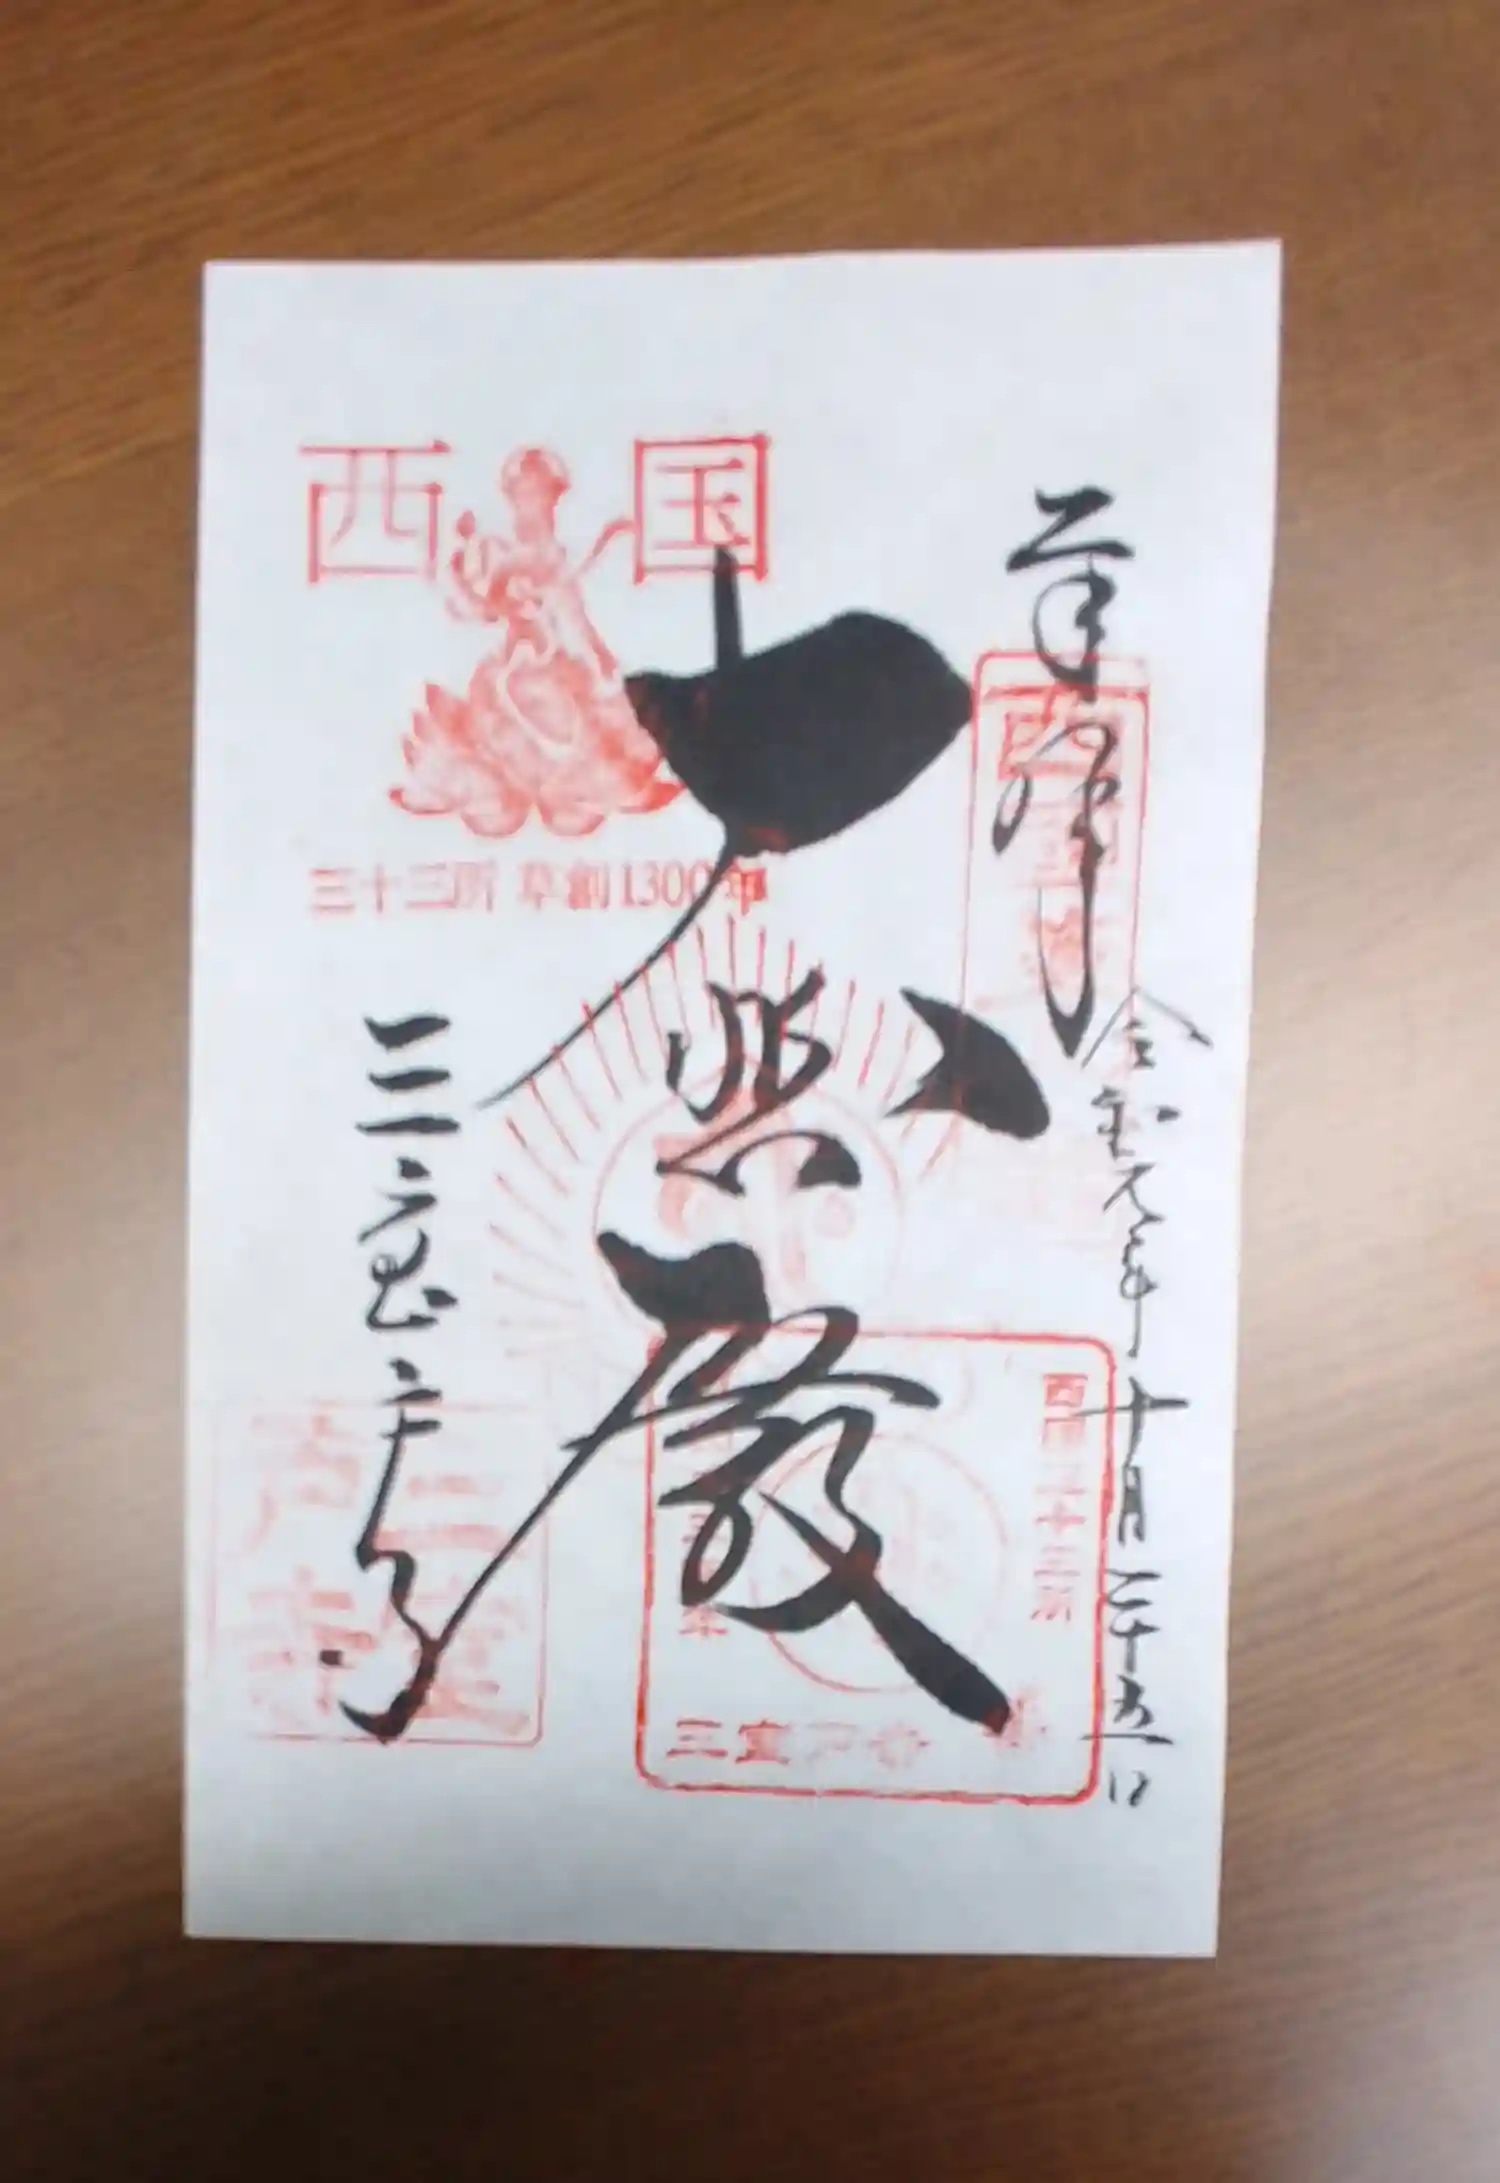 奉拝
令和元年十月二十五日
西国
三十三所 草創1300年
大悲殿
三室戸寺
西国三十三所
三室戸寺